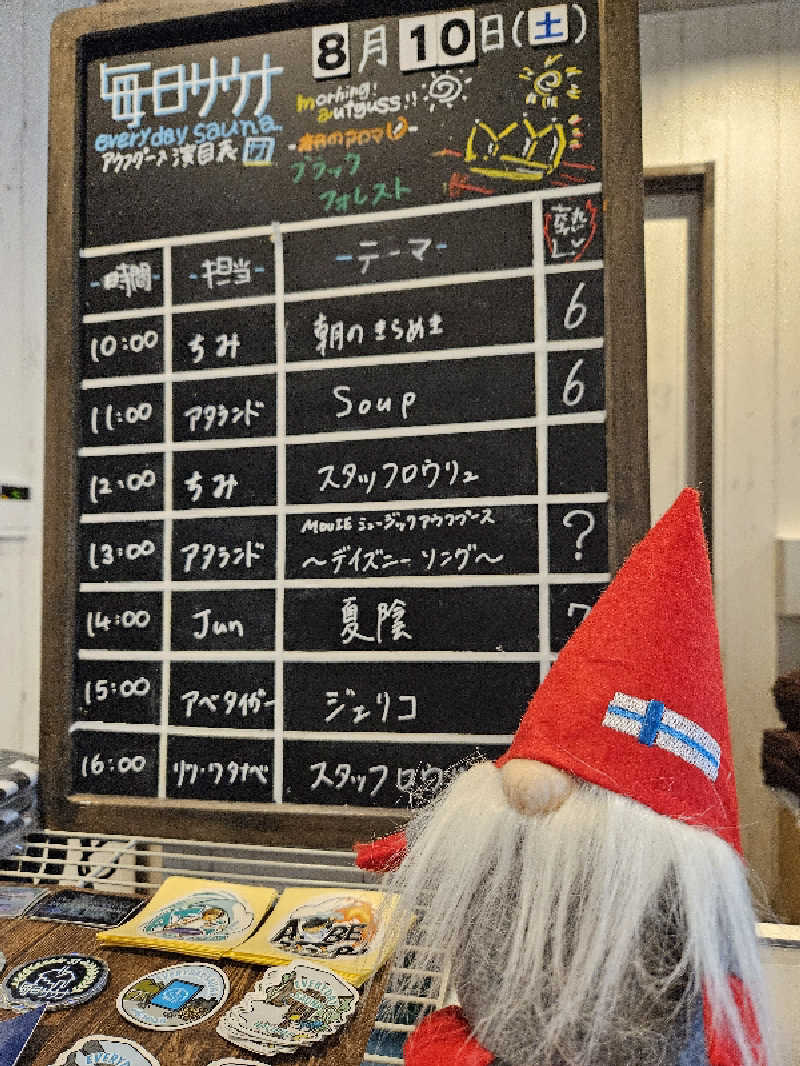 8月10日(土)
毎日サウナ
everyday sauna
アウフグース演目表
morning!
autguss!!
-朝のアロマ-
ブラック
フォレスト
-時間- -担当- -テーマ- 熱Lv
10:00 ちみ 朝のきらめき 6
11:00 アタランド Soup 6
12:00 ちみ スタッフロウリュ
13:00 アタランド MOVIEミュージックアウフグース ?
～デイズニーソング～
14:00 Jun 夏陰 7
15:00 アベタイガー ジェリコ
16:00 リツ・ワタナベ スタッフロウ
EVERYDAY
EVERY